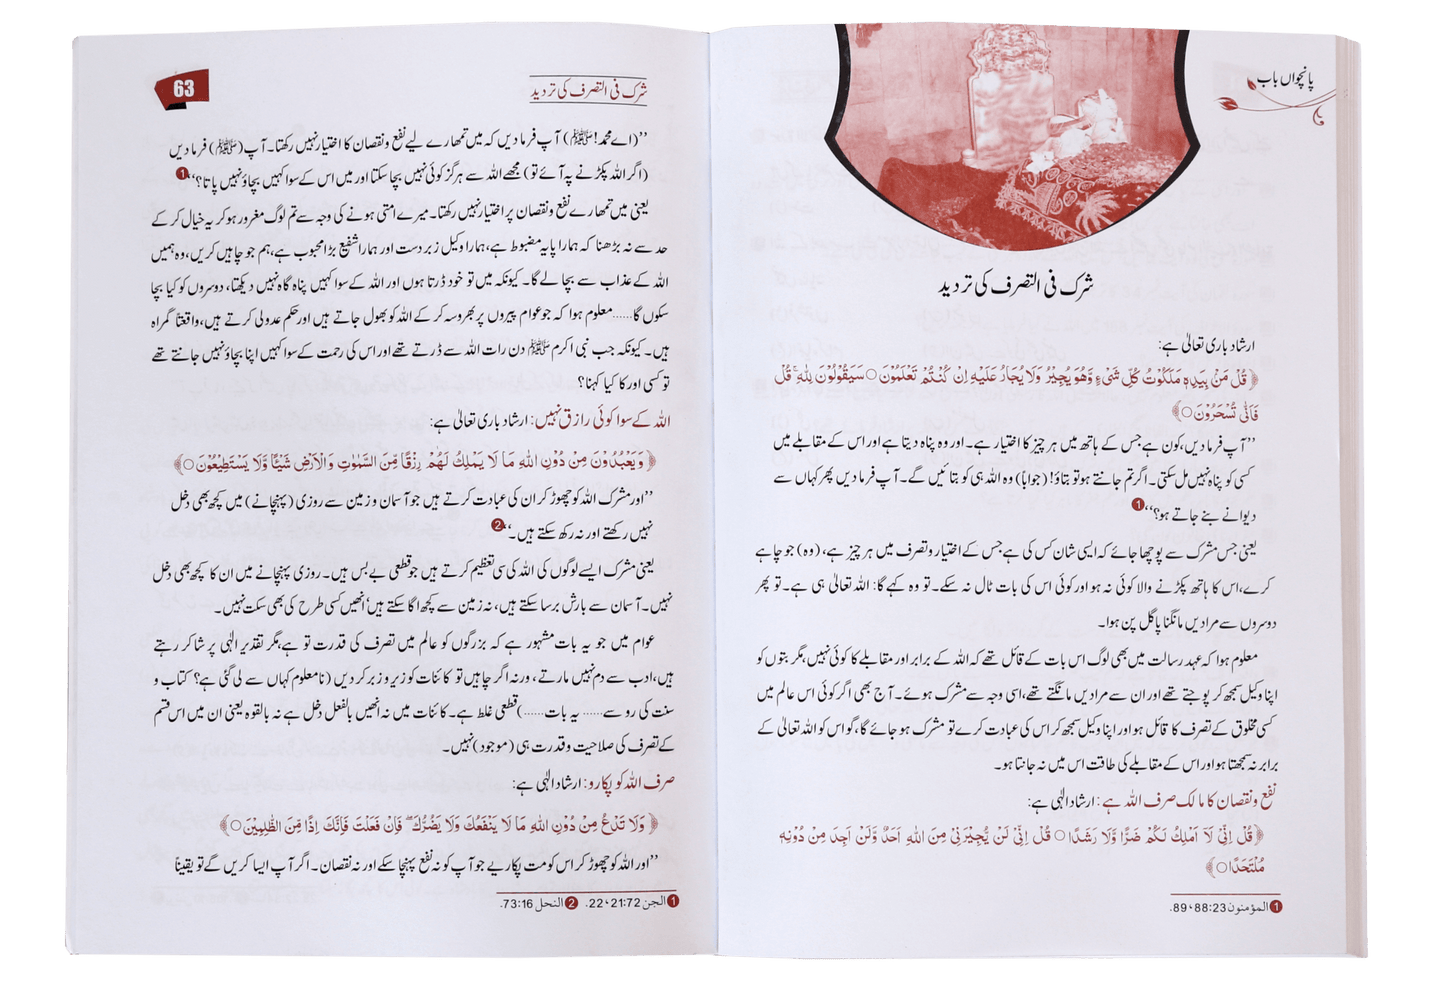 پانچواں باب
شرک فی التصرف کی تردید
ارشاد باری تعالیٰ ہے:
﴿ قُلْ مَنْۢ بِيَدِهٖ مَلَكُوْتُ كُلِّ شَيْءٍ وَّهُوَ يُجِيْرُ وَلَا يُجَارُ عَلَيْهِ اِنْ كُنْتُمْ تَعْلَمُوْنَ○ سَيَقُوْلُوْنَ لِلّٰهِ ؕ قُلْ
فَاَنّٰى تُسْحَرُوْنَ○﴾
’’آپ فرما دیں، کون ہے جس کے ہاتھ میں ہر چیز کا اختیار ہے۔ اور وہ پناہ دیتا ہے اور اس کے مقابلے میں
کسی کو پناہ نہیں مل سکتی۔ اگر تم جانتے ہو تو بتاؤ! (جواباً) وہ اللہ ہی کو بتائیں گے۔ آپ فرما دیں پھر کہاں سے
دیوانے بنے جاتے ہو؟‘‘ 1
یعنی جس مشرک سے پوچھا جائے کہ ایسی شان کس کی ہے جس کے اختیار و تصرف میں ہر چیز ہے، (وہ) جو چاہے
کرے، اس کا ہاتھ پکڑنے والا کوئی نہ ہو اور کوئی اس کی بات ٹال نہ سکے۔ تو وہ کہے گا: اللہ تعالیٰ ہی ہے۔ تو پھر
دوسروں سے مرادیں مانگنا پاگل پن ہوا۔
معلوم ہوا کہ عہد رسالت میں بھی لوگ اس بات کے قائل تھے کہ اللہ کے برابر اور مقابلے کا کوئی نہیں، مگر بتوں کو
اپنا وکیل سمجھ کر پوجتے تھے اور ان سے مرادیں مانگتے تھے، اسی وجہ سے مشرک ہوئے۔ آج بھی اگر کوئی اس عالم میں
کسی مخلوق کے تصرف کا قائل ہو اور اپنا وکیل سمجھ کر اس کی عبادت کرے تو مشرک ہو جائے گا، گو اس کو اللہ تعالیٰ کے
برابر نہ سمجھتا ہو اور اس کے مقابلے کی طاقت اس میں نہ جانتا ہو۔
نفع و نقصان کا مالک صرف اللہ ہے: ارشاد الٰہی ہے:
﴿ قُلْ اِنِّيْ لَاۤ اَمْلِكُ لَكُمْ ضَرًّا وَّلَا رَشَدًا○ قُلْ اِنِّيْ لَنْ يُّجِيْرَنِيْ مِنَ اللّٰهِ اَحَدٌ وَّلَنْ اَجِدَ مِنْ دُوْنِهٖ
مُلْتَحَدًا○﴾
1 المؤمنون 88:23، 89.
شرک فی التصرف کی تردید
63
’’(اے محمد! ﷺ) آپ فرما دیں کہ میں تمھارے لیے نفع و نقصان کا اختیار نہیں رکھتا۔ آپ (ﷺ) فرما دیں
(اگر اللہ پکڑنے پہ آئے تو) مجھے اللہ سے ہرگز کوئی نہیں بچا سکتا اور میں اس کے سوا کہیں بچاؤ نہیں پاتا؟‘‘ 1
یعنی میں تمھارے نفع و نقصان پر اختیار نہیں رکھتا۔ میرے امتی ہونے کی وجہ سے تم لوگ مغرور ہو کر یہ خیال کر کے
حد سے نہ بڑھنا کہ ہمارا پایہ مضبوط ہے، ہمارا وکیل زبردست اور ہمارا شفیع بڑا محبوب ہے، ہم جو چاہیں کریں، وہ ہمیں
اللہ کے عذاب سے بچا لے گا۔ کیونکہ میں تو خود ڈرتا ہوں اور اللہ کے سوا کہیں پناہ گاہ نہیں دیکھتا، دوسروں کو کیا بچا
سکوں گا...... معلوم ہوا کہ جو عوام پیروں پر بھروسہ کر کے اللہ کو بھول جاتے ہیں اور حکم عدولی کرتے ہیں، واقعتاً گمراہ
ہیں۔ کیونکہ جب نبی اکرم ﷺ دن رات اللہ سے ڈرتے تھے اور اس کی رحمت کے سوا کہیں اپنا بچاؤ نہیں جانتے تھے
تو کسی اور کا کیا کہنا؟
اللہ کے سوا کوئی رازق نہیں: ارشاد باری تعالیٰ ہے:
﴿ وَيَعْبُدُوْنَ مِنْ دُوْنِ اللّٰهِ مَا لَا يَمْلِكُ لَهُمْ رِزْقًا مِّنَ السَّمٰوٰتِ وَالْاَرْضِ شَيْئًا وَّلَا يَسْتَطِيْعُوْنَ○﴾
’’اور مشرک اللہ کو چھوڑ کر ان کی عبادت کرتے ہیں جو آسمان و زمین سے روزی (پہنچانے) میں کچھ بھی دخل
نہیں رکھتے اور نہ رکھ سکتے ہیں۔‘‘ 2
یعنی مشرک ایسے لوگوں کی اللہ کی سی تعظیم کرتے ہیں جو قطعی بے بس ہیں۔ روزی پہنچانے میں ان کا کچھ بھی دخل
نہیں۔ آسمان سے بارش برسا سکتے ہیں، نہ زمین سے کچھ اگا سکتے ہیں، انھیں کسی طرح کی بھی سکت نہیں۔
عوام میں جو یہ بات مشہور ہے کہ بزرگوں کو عالم میں تصرف کی قدرت تو ہے، مگر تقدیر الٰہی پر شاکر رہتے
ہیں، ادب سے دم نہیں مارتے، ورنہ اگر چاہیں تو کائنات کو زیر و زبر کر دیں (نا معلوم کہاں سے لی گئی ہے؟ کتاب و
سنت کی رو سے...... یہ بات......) قطعی غلط ہے۔ کائنات میں نہ انھیں بالفعل دخل ہے نہ بالقوہ یعنی ان میں اس قسم
کے تصرف کی صلاحیت و قدرت ہی (موجود) نہیں۔
صرف اللہ کو پکارو: ارشاد الٰہی ہے:
﴿ وَلَا تَدْعُ مِنْ دُوْنِ اللّٰهِ مَا لَا يَنْفَعُكَ وَلَا يَضُرُّكَ ۚ فَاِنْ فَعَلْتَ فَاِنَّكَ اِذًا مِّنَ الظّٰلِمِيْنَ○﴾
’’اور اللہ کو چھوڑ کر اس کو مت پکاریے جو آپ کو نہ نفع پہنچا سکے اور نہ نقصان۔ اگر آپ ایسا کریں گے تو یقیناً
1 الجن 21:72، 22. 2 النحل 73:16.